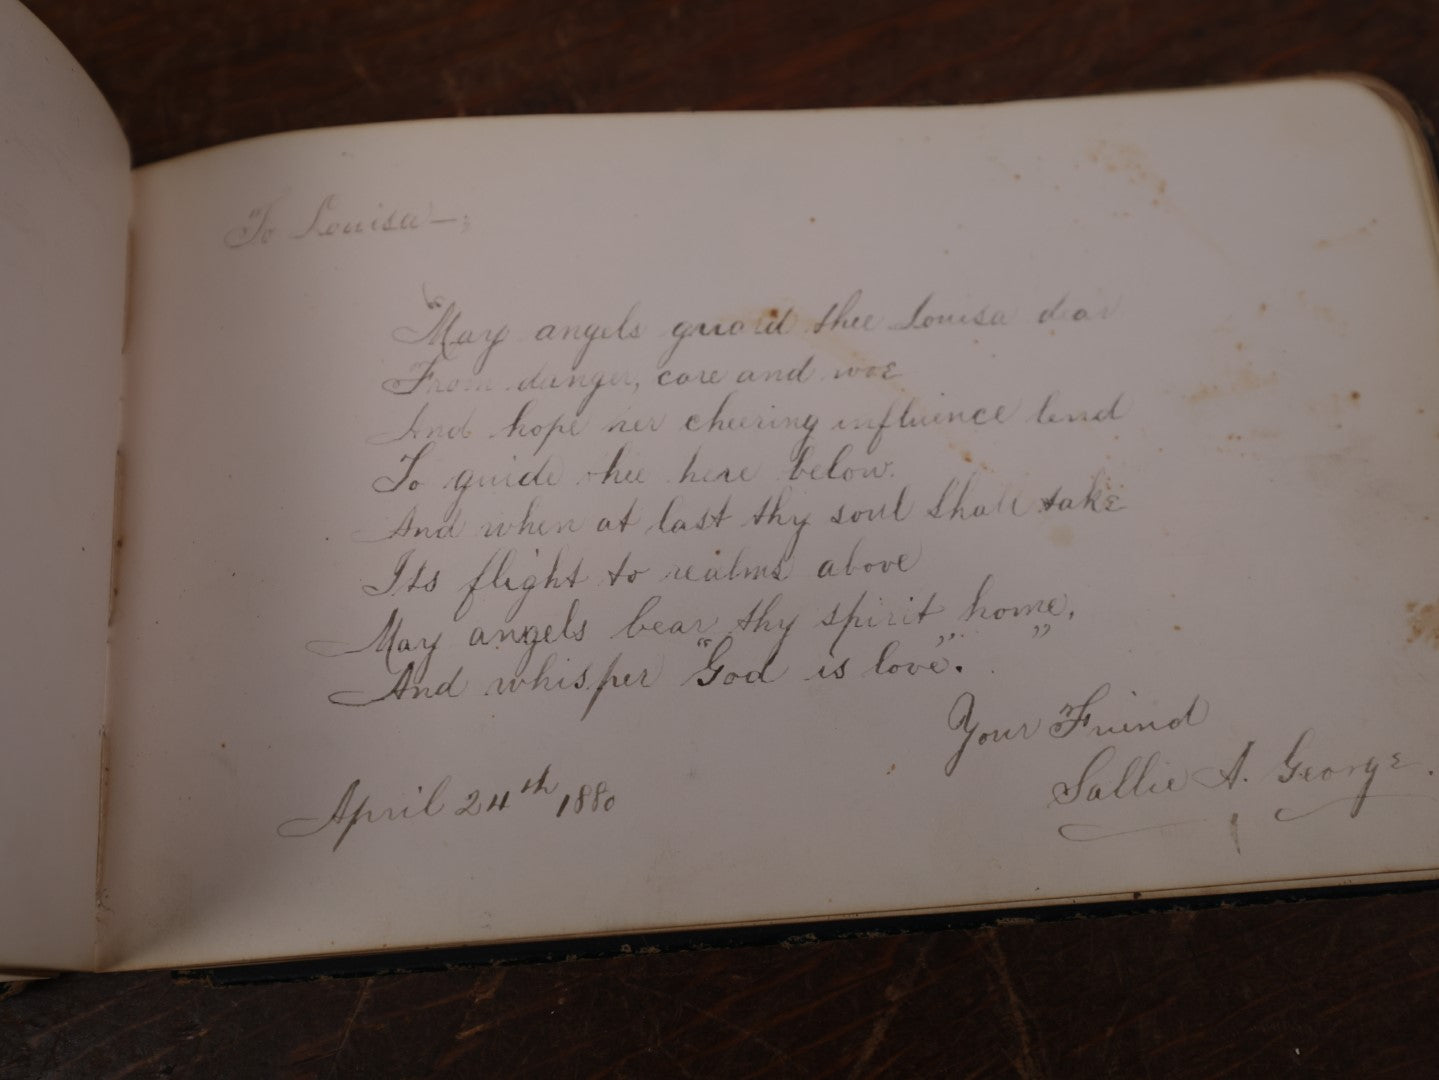 To Louisa—;
"May angels guard thee Louisa dear
From danger, care and woe
And hope her cheering influence lend
To guide thee here below.
And when at last thy soul shall take
Its flight to realms above
May angels bear thy spirit home,
And whisper "God is love"."
Your Friend
Sallie A. George.
April 24th 1880